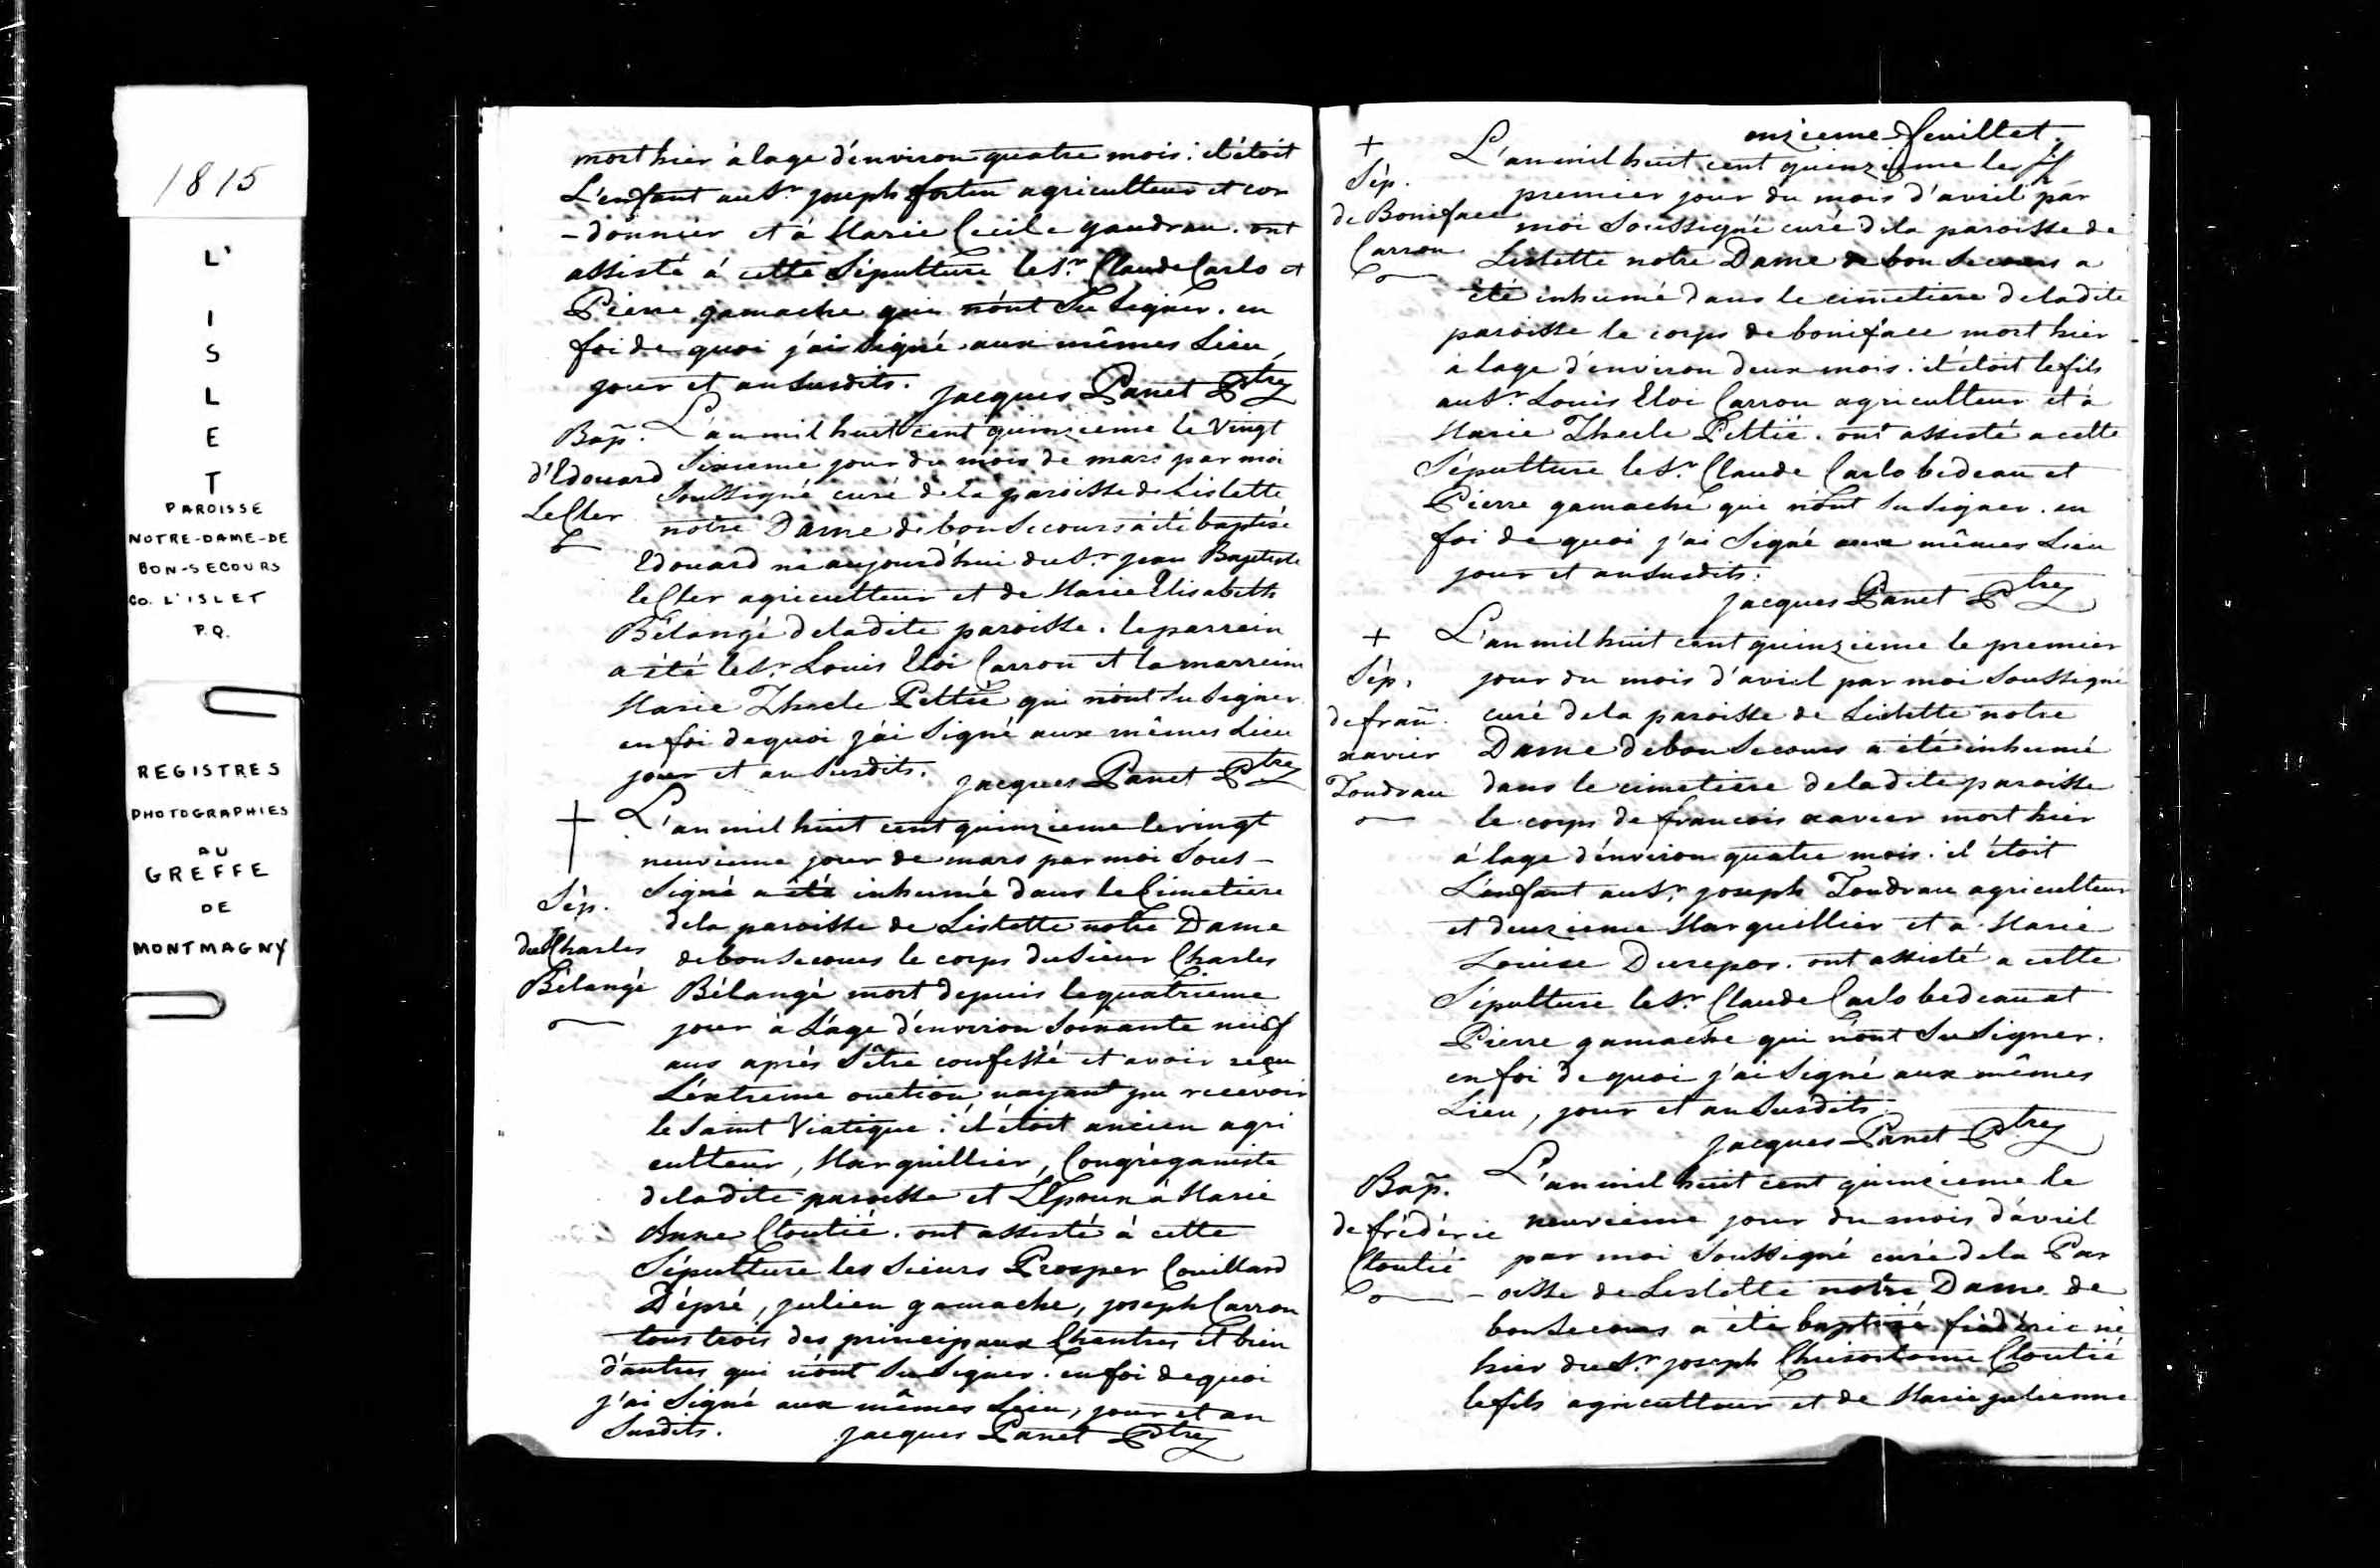 1815
L'
I
S
L
E
T
PAROISSE
NOTRE-DAME-DE
BON-SECOURS
CO. L'ISLET
P.Q.
REGISTRES
PHOTOGRAPHIES
AU
GREFFE
DE
MONTMAGNY
mort hier à lage d'environ quatre mois : il étoit
L'enfant au Sr. joseph fortin agriculteur et cor
-donnier et à Marie Cecile gaudrau. ont
assisté à cette Sépulture le Sr. Claude Carlo et
Pierre gamache qui n'ont Su Signer. en
foi de quoi j'ai Signé aux mêmes Lieu,
jour et an Susdits. jacques Panet Ptre
Bap. L'an mil huit cent quinzieme le Vingt
d'Edouard Sixieme jour du mois de mars par moi
LeCler Soussigné curé de la paroisse de Lislette
notre Dame de bon Secours a été baptisé
Edouard né aujourd'hui du Sr. jean Baptiste
leCler agriculteur et de Marie Elisabeth
Bélangé de ladite paroisse. le parrein
a été le Sr. Louis Eloi Carron et la marreine
Marie Thecle Pettié qui n'ont Su Signer
en foi de quoi j'ai Signé aux mêmes Lieu
jour et an Susdits. jacques Panet Ptre
L'an mil huit cent quinzieme le vingt
neuvieme jour de mars par moi Sous-
Sép. Signé a été inhumé dans le Cimetiere
de la paroisse de Lislette notre Dame
du Sr Charles de bon Secours le corps du Sieur Charles
Bélangé Bélangé mort depuis le quatrieme
jour à L'age d'environ Soixante neuf
ans après S'être confessé et avoir reçu
L'extreme onction nayant pu recevoir
le Saint Viatique : il étoit ancien agri
culteur, Marguillier, Congréganiste
de ladite paroisse et L'Epoux à Marie
Anne Cloutié. ont assisté à cette
Sépulture les Sieurs Prosper Couillard
Dépré, julien gamache, joseph Carron
tous trois des principaux Chantres et bien
d'autres qui n'ont Su Signer. en foi de quoi
j'ai Signé aux mêmes Lieu, jour et an
Susdits. jacques Panet Ptre
onzieme feuillet.
+ L'an mil huit cent quinzieme le
Sép. premier jour du mois d'avril par
de Boniface moi Soussigné curé de la paroisse de
Carron Lislette notre Dame de bon Secours a
été inhumé dans le cimetiere de ladite
paroisse le corps de boniface mort hier
à lage d'environ deux mois : il étoit le fils
au Sr. Louis Eloi Carron agriculteur et à
Marie Thecle Pettié. ont assisté a cette
Sépulture le Sr. Claude Carlo bedeau et
Pierre gamache qui n'ont Su Signer. en
foi de quoi j'ai Signé aux mêmes Lieu
jour et an Susdits.
jacques Panet Ptre
+ L'an mil huit cent quinzieme le premier
Sép. jour du mois d'avril par moi Soussigné
de fran. curé de la paroisse de Lislette notre
xavier Dame de bon Secours a été inhumé
Toudrau dans le cimetiere de ladite paroisse
le corps de francois xavier mort hier
à lage d'environ quatre mois. il étoit
L'enfant au Sr. joseph Toudrau agriculteur
et deuxieme Marguillier et a Marie
Louise Durepos. ont assisté a cette
Sépulture le Sr. Claude Carlo bedeau et
Pierre gamache qui n'ont Su Signer.
en foi de quoi j'ai Signé aux mêmes
Lieu, jour et an Susdits.
jacques Panet Ptre
Bap. L'an mil huit cent quinzieme le
de frédéric neuvieme jour du mois d'avril
Cloutié par moi Soussigné curé de la Par
-oisse de Lislette notre Dame de
bon Secours a été baptisé frédéric né
hier du Sr. joseph Chrisostome Cloutié
le fils agriculteur et de Marie julienne